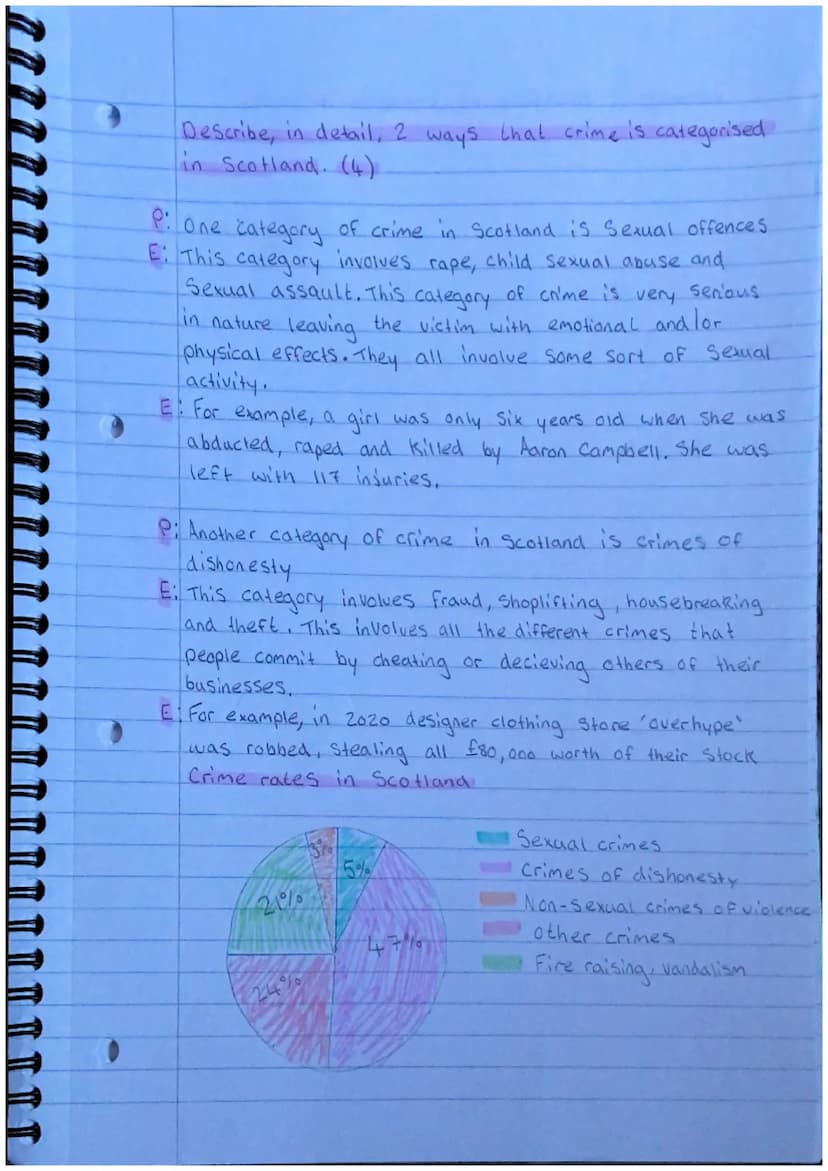 Describe, in detail, 2 ways that crime is categorised
in Scotland. (4)
P: One category of crime in Scotland is Sexual offences
E: This category involves rape, child sexual abuse and
Sexual assault. This category of crime is very serious
in nature leaving the victim with emotional and/or
physical effects. They all involve some sort of sexual
activity.
E: For example, a girl was only six years old when she was
abducted, raped and killed by Aaron Campbell. She was
left with 117 injuries.
P: Another category of crime in Scotland is crimes of
dishonesty
E: This category involves fraud, shoplifting, housebreaking
and theft. This involves all the different crimes that
people commit by cheating or decieving others of their
businesses.
E: For example, in 2020 designer clothing store 'overhype'
was robbed, stealing all £80,000 worth of their stock
Crime rates in Scotland
3%
5%
21%
47%
24%
Sexual crimes
Crimes of dishonesty
Non-sexual crimes of violence
other crimes
Fire raising, vandalism